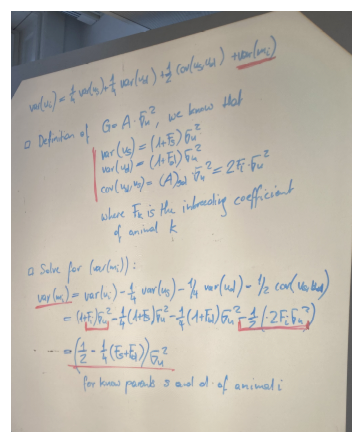 var(u_i) = 1/4 var(u_s) + 1/4 var(u_d) + 1/2 cov(u_s,u_d) + var(m_i)
□ Definition of G = A · σ_u², we know that
var(u_s) = (1+F_s) σ_u²
var(u_d) = (1+F_d) σ_u²
cov(u_d,u_s) = (A)_sd · σ_u² = 2F_i · σ_u²
where F_k is the inbreeding coefficient
of animal k
□ Solve for (var(m_i)):
var(m_i) = var(u_i) - 1/4 var(u_s) - 1/4 var(u_d) - 1/2 cov(u_s,u_d)
= (1+F_i)σ_u² - 1/4 (1+F_s)σ_u² - 1/4 (1+F_d)σ_u² - 1/2 (·2F_i σ_u²)
... = (1/2 - 1/4 (F_s+F_d)) σ_u²
for know parents s and d of animal i